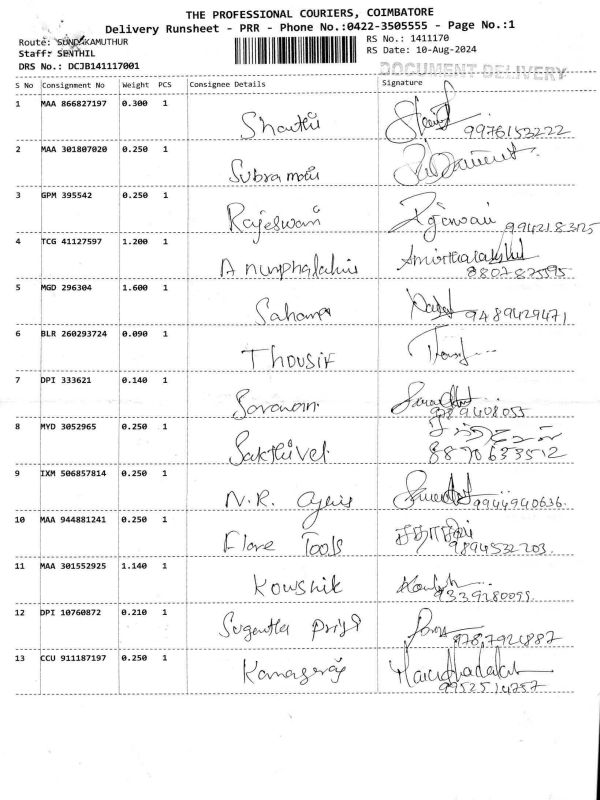 THE PROFESSIONAL COURIERS, COIMBATORE
Delivery Runsheet - PRR - Phone No.:0422-3505555 - Page No.:1
Route: SUNDAKAMUTHUR
RS No.: 1411170
Staff: SENTHIL
RS Date: 10-Aug-2024
DRS No.: DCJB141117001
DOCUMENT DELIVERY
S No Consignment No Weight PCS Consignee Details Signature
1 MAA 866827197 0.300 1
Shanthi 9976153222
2 MAA 301807020 0.250 1
Subramani
3 GPM 395542 0.250 1
Rajeswari
4 TCG 41127597 1.200 1
8807825595
5 MGD 296304 1.600 1
9489429471
6 BLR 260293724 0.090 1
Thousif
7 DPI 333621 0.140 1
Saravanan 9789408055
8 MYD 3052965 0.250 1
சக்திவேல்
Sakthivel 8870633512
9 IXM 506857814 0.250 1
N.R. 9944940636
10 MAA 944881241 0.250 1
Flore Tools 9894532203
11 MAA 301552925 1.140 1
Koushik 9339280099
12 DPI 10760872 0.210 1
Sugantha Priya 9787921887
13 CCU 911187197 0.250 1
Kanagaraj 9952514757